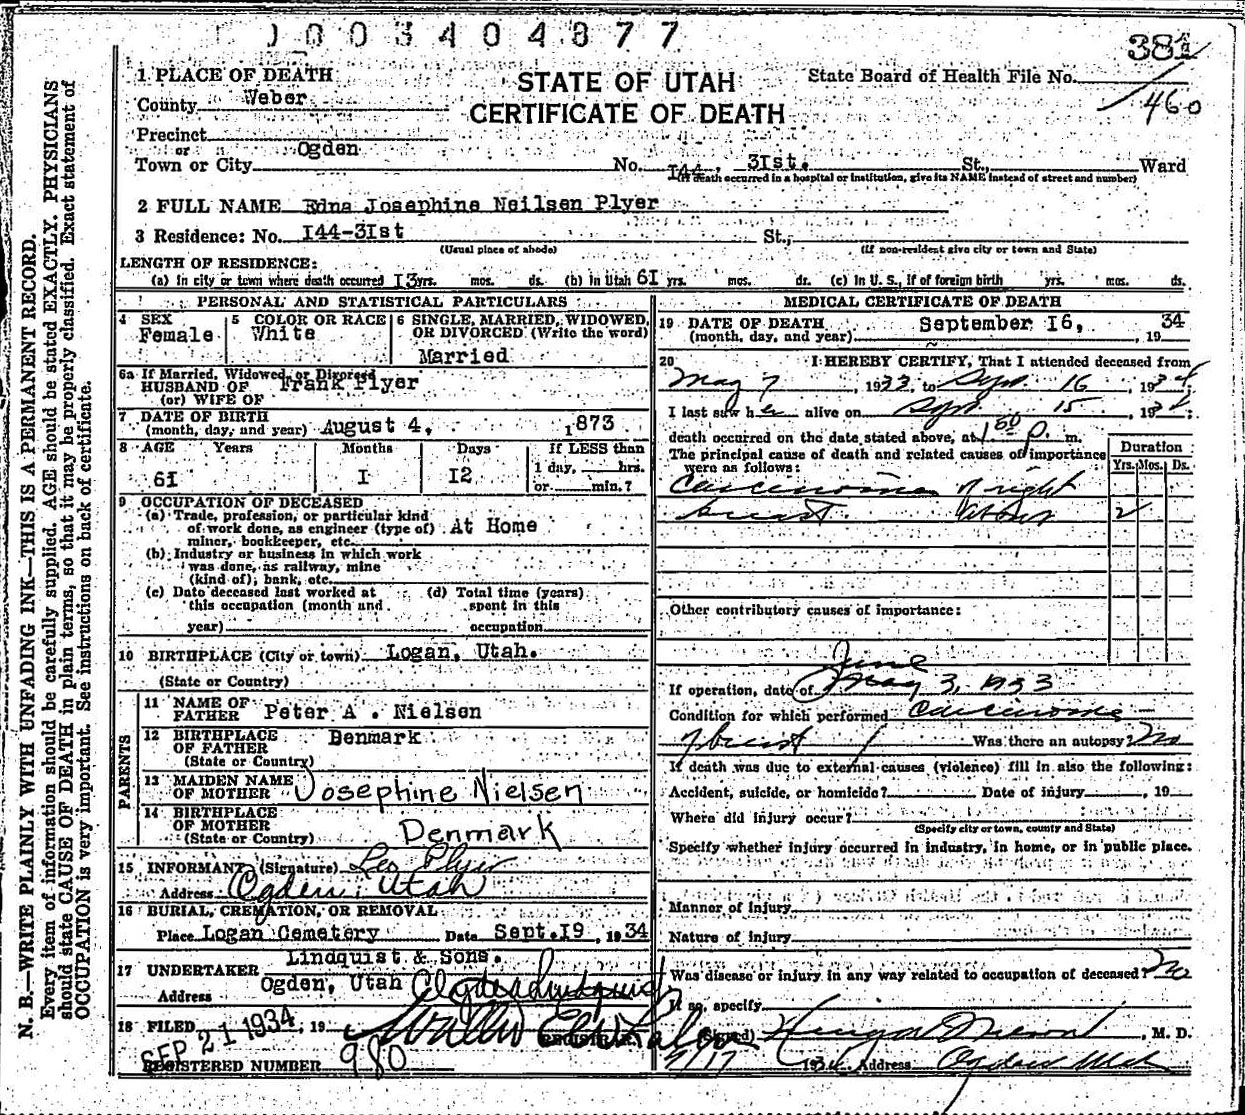 0003404877
381
460
STATE OF UTAH
CERTIFICATE OF DEATH
State Board of Health File No.
1 PLACE OF DEATH
County Weber
Precinct
or
Town or City Ogden No. I44, 3Ist. St., Ward
(If death occurred in a hospital or institution, give its NAME instead of street and number)
2 FULL NAME Edna Josephine Neilsen Plyer
3 Residence: No. I44-3Ist St.,
(Usual place of abode) (If non-resident give city or town and State)
LENGTH OF RESIDENCE:
(a) In city or town where death occurred I3 yrs. mos. ds. (b) In Utah 6I yrs. mos. ds. (c) In U. S., if of foreign birth yrs. mos. ds.
PERSONAL AND STATISTICAL PARTICULARS
4 SEX Female
5 COLOR OR RACE White
6 SINGLE, MARRIED, WIDOWED, OR DIVORCED (Write the word)
Married
6a If Married, Widowed, or Divorced
HUSBAND OF Frank Plyer
(or) WIFE OF
7 DATE OF BIRTH
(month, day, and year) August 4, 1873
8 AGE Years Months Days If LESS than
6I I I2 1 day, hrs.
or min.?
9 OCCUPATION OF DECEASED
(a) Trade, profession, or particular kind
of work done, as engineer (type of) At Home
miner, bookkeeper, etc.
(b) Industry or business in which work
was done, as railway, mine
(kind of), bank, etc.
(c) Date deceased last worked at (d) Total time (years)
this occupation (month and spent in this
year) occupation
10 BIRTHPLACE (City or town) Logan, Utah.
(State or Country)
PARENTS
11 NAME OF
FATHER Peter A. Nielsen
12 BIRTHPLACE
OF FATHER Denmark
(State or Country)
13 MAIDEN NAME
OF MOTHER Josephine Nielsen
14 BIRTHPLACE
OF MOTHER
(State or Country) Denmark
15 INFORMANT (Signature) Leo Plyer
Address Ogden, Utah
16 BURIAL, CREMATION, OR REMOVAL
Place Logan Cemetery Date Sept. I9, 1934
17 UNDERTAKER Lindquist & Sons.
Address Ogden, Utah
18 FILED SEP 21 1934, 19
REGISTRAR
REGISTERED NUMBER 980
MEDICAL CERTIFICATE OF DEATH
19 DATE OF DEATH September I6, 34
(month, day, and year) , 19
20 I HEREBY CERTIFY, That I attended deceased from
May 7, 1933 to Sept. 16, 1934
I last saw her alive on Sept. 15, 1934;
death occurred on the date stated above, at 1 50 p. m.
The principal cause of death and related causes of importance
were as follows:
Duration
Yrs. Mos. Ds.
Carcinoma of right
breast 2
Other contributory causes of importance:
June
If operation, date of May 3, 1933
Condition for which performed Carcinoma
of breast Was there an autopsy? No
If death was due to external causes (violence) fill in also the following:
Accident, suicide, or homicide? Date of injury , 19
Where did injury occur?
(Specify city or town, county and State)
Specify whether injury occurred in industry, in home, or in public place.
Manner of injury
Nature of injury
Was disease or injury in any way related to occupation of deceased? No
If so, specify
(Signed) , M. D.
9/17 1934 Address Ogden Utah
N. B.—WRITE PLAINLY WITH UNFADING INK—THIS IS A PERMANENT RECORD.
Every item of information should be carefully supplied. AGE should be stated EXACTLY. PHYSICIANS
should state CAUSE OF DEATH in plain terms, so that it may be properly classified. Exact statement of
OCCUPATION is very important. See instructions on back of certificate.